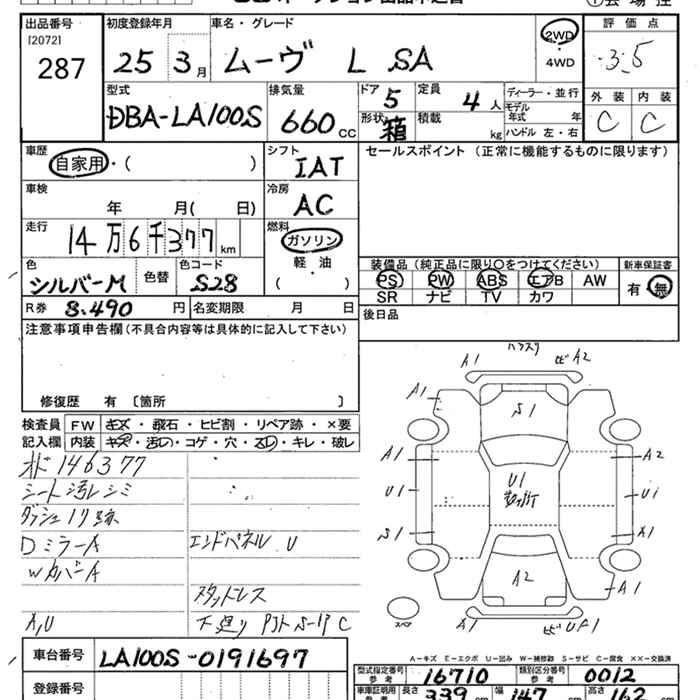 出品番号 初度登録年月 車名・グレード 評価点
[2072]
287 25 3月 ムーヴ L SA 2WD 3.5
・4WD
型式 排気量 ドア 定員 ディーラー・並行 外装 内装
DBA-LA100S 660cc 5 4人 モデル年式 年 C C
形状 箱 積載 kg ハンドル 左・右
車歴 シフト セールスポイント (正常に機能するものに限ります)
自家用・( ) IAT
車検 冷房
年 月( 日) AC
走行 燃料
14万6千377km ガソリン
軽・油
( ・ )
色 色替 色コード 装備品 (純正品に限り○をつけてください) 新車保証書
シルバーM S28 PS PW ABS エアB AW 有・無
SR ナビ TV カワ
R券 8.490円 名変期限 月 日 後日品
注意事項申告欄(不具合内容等は具体的に記入して下さい)
修復歴 有〔箇所 〕
検査員 FW キズ・飛石・ヒビ割・リペア跡・×要
記入欄 内装 キズ・汚レ・コゲ・穴・スレ・キレ・破レ
146377
シート汚レシミ
Dミラー A
WカバーA エンドパネル U
スタッドレス
A,U 下廻り C
A1 A2
A1 S1
A1 A2
U1 U1 U1
S1 A1
A2 A1
A1 UA1
スペア
A-キズ E-エクボ U-凹み W-補修跡 S-サビ C-腐食 ××-交換済
車台番号 LA100S-0191697
登録番号
型式指定番号 参考 16710 類別区分番号 参考 0012
車庫証明用 参考 長さ 339 cm 幅 147 cm 高さ 162 cm